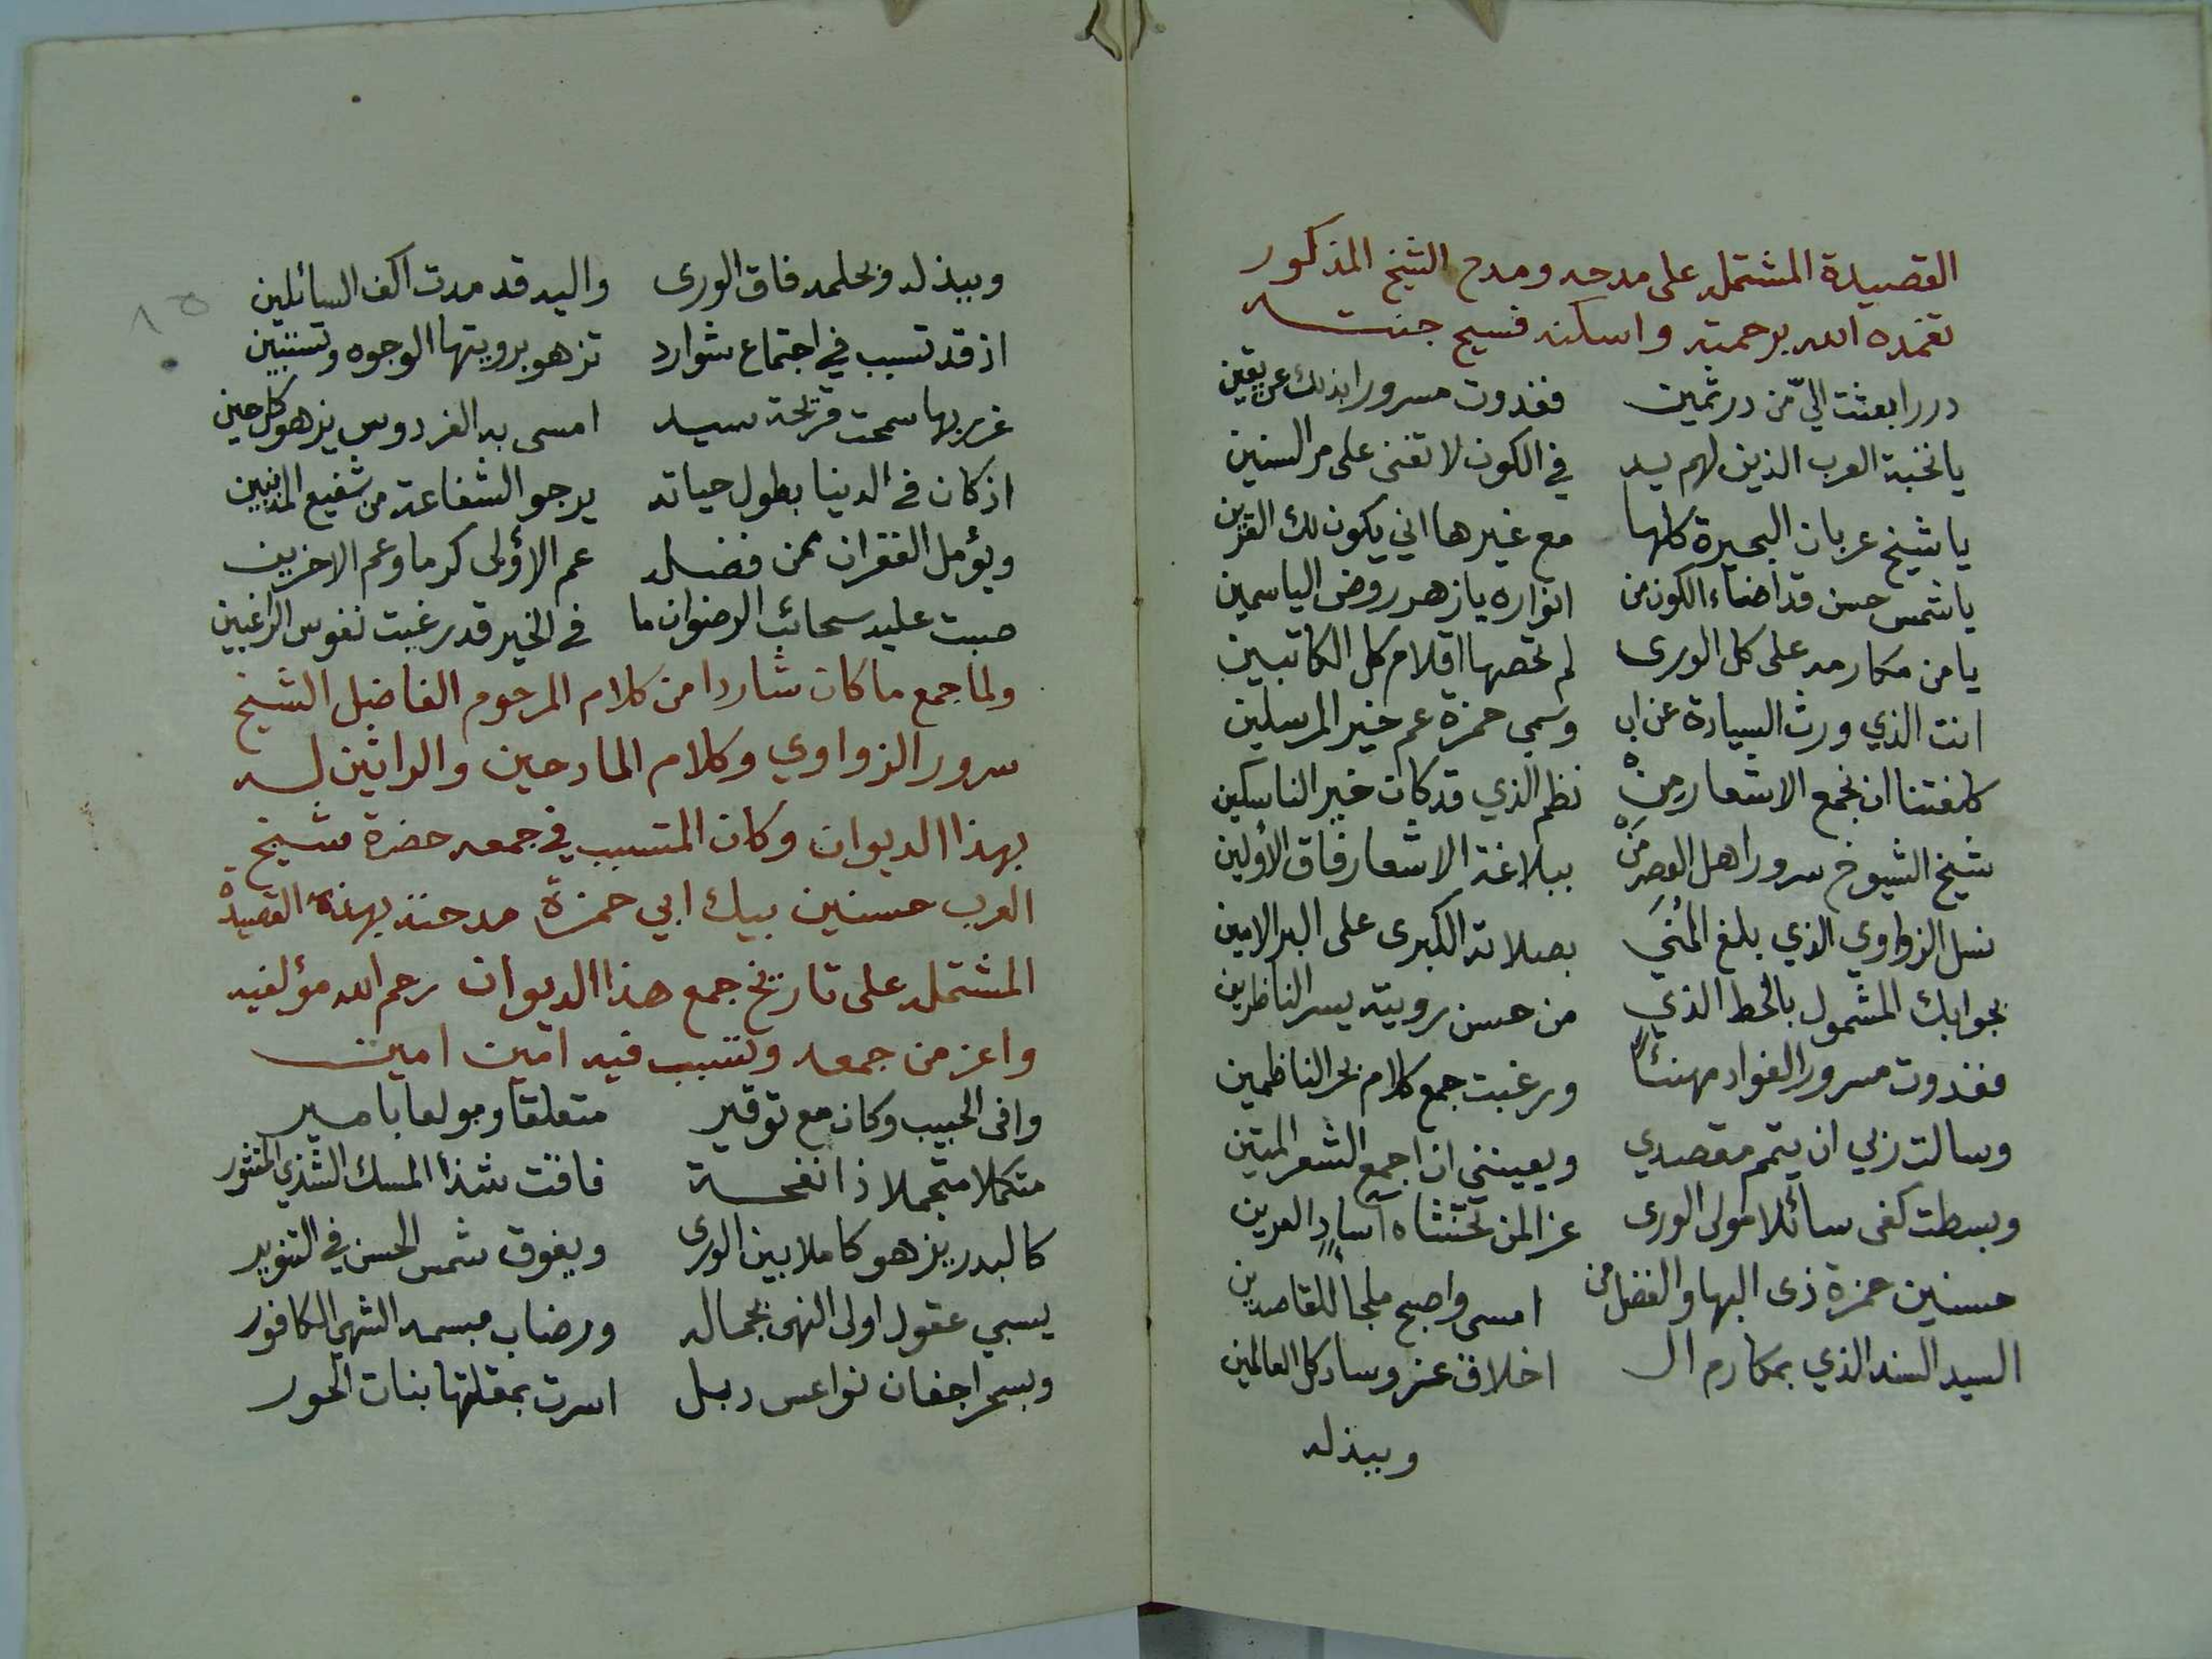 القصيدة المشتملة على مدحه ومدح الشيخ المذكور
تغمده الله برحمته واسكنه فسيح جنته
دررا بعثت اليّ من در ثمين فغدوت مسرورا بذلك عن يقين
يا نخبة العرب الذين لهم يد في الكون لا تفنى على مر السنين
يا شيخ عربان البحيرة كلها مع غيرها اني يكون لك القرين
يا شمس حسن قد اضاء الكون من انواره يا زهر روض الياسمين
يا من مكارمه على كل الورى لم تحصها اقلام كل الكاتبين
انت الذي ورث السيادة عن اب وسمي حمزة عم خير المرسلين
كلفتنا ان نجمع الاشعار من نظم الذي قد كان خير الناسكين
شيخ الشيوخ سرور اهل العصر من ببلاغة الاشعار فاق الأولين
نسل الزواوي الذي بلغ المنى بصلاته الكبرى على البر الامين
بجوابك المشمول بالخط الذي من حسن رويته يسر الناظرين
فغدوت مسرور الفواد مهنئا ورغبت جمع كلام بحر الناظمين
وسالت ربي ان يتمم مقصدي ويعينني ان اجمع الشعر المتين
وبسطت كفى سائلا مولى الورى عزا لمن تخشاه آساد العرين
حسنين حمزة ذى البها والفضل من امسى واصبح ملجأ للقاصدين
السيد السند الذي بمكارم ال اخلاق عز وساد كل العالمين
وببذله
وببذله وبحلمه فاق الورى واليه قد مدت اكف السائلين
اذ قد تسبب في اجتماع شوارد تزهو برويتها الوجوه وتستبين
غرر بها سمحت قريحة سيد امسى به الفردوس يزهو كل حين
اذ كان فى الدنيا بطول حياته يرجو الشفاعة من شفيع المذنبين
ويؤمل الغفران ممن فضله عم الاؤلى كرما وعم الاخرين
صبت عليه سحائب الرضوان ما فى الخير قد رغبت نفوس الراغبين
ولما جمع ما كان شاردا من كلام المرحوم الفاضل الشيخ
سرور الزواوي وكلام المادحين والراثين له
بهذا الديوان وكان المتسبب في جمعه حضرة شيخ
العرب حسنين بيك ابي حمزة مدحته بهذه القصيدة
المشتملة على تاريخ جمع هذا الديوان رحم الله مؤلفيه
واعز من جمعه وتسبب فيه امين امين
وافى الحبيب وكان مع توقير متعلقا ومولعا بامير
متكملا متجملا ذا نفحة فاقت شذا المسك الشذي المنثور
كالبدر يزهو كاملا بين الورى ويفوق شمس الحسن في التنوير
يسبي عقول اولى النهى بجماله ورضاب مبسمه الشهي الكافور
وبسحر اجفان نواعس ذبل اسرت بمقلتها بنات الحور